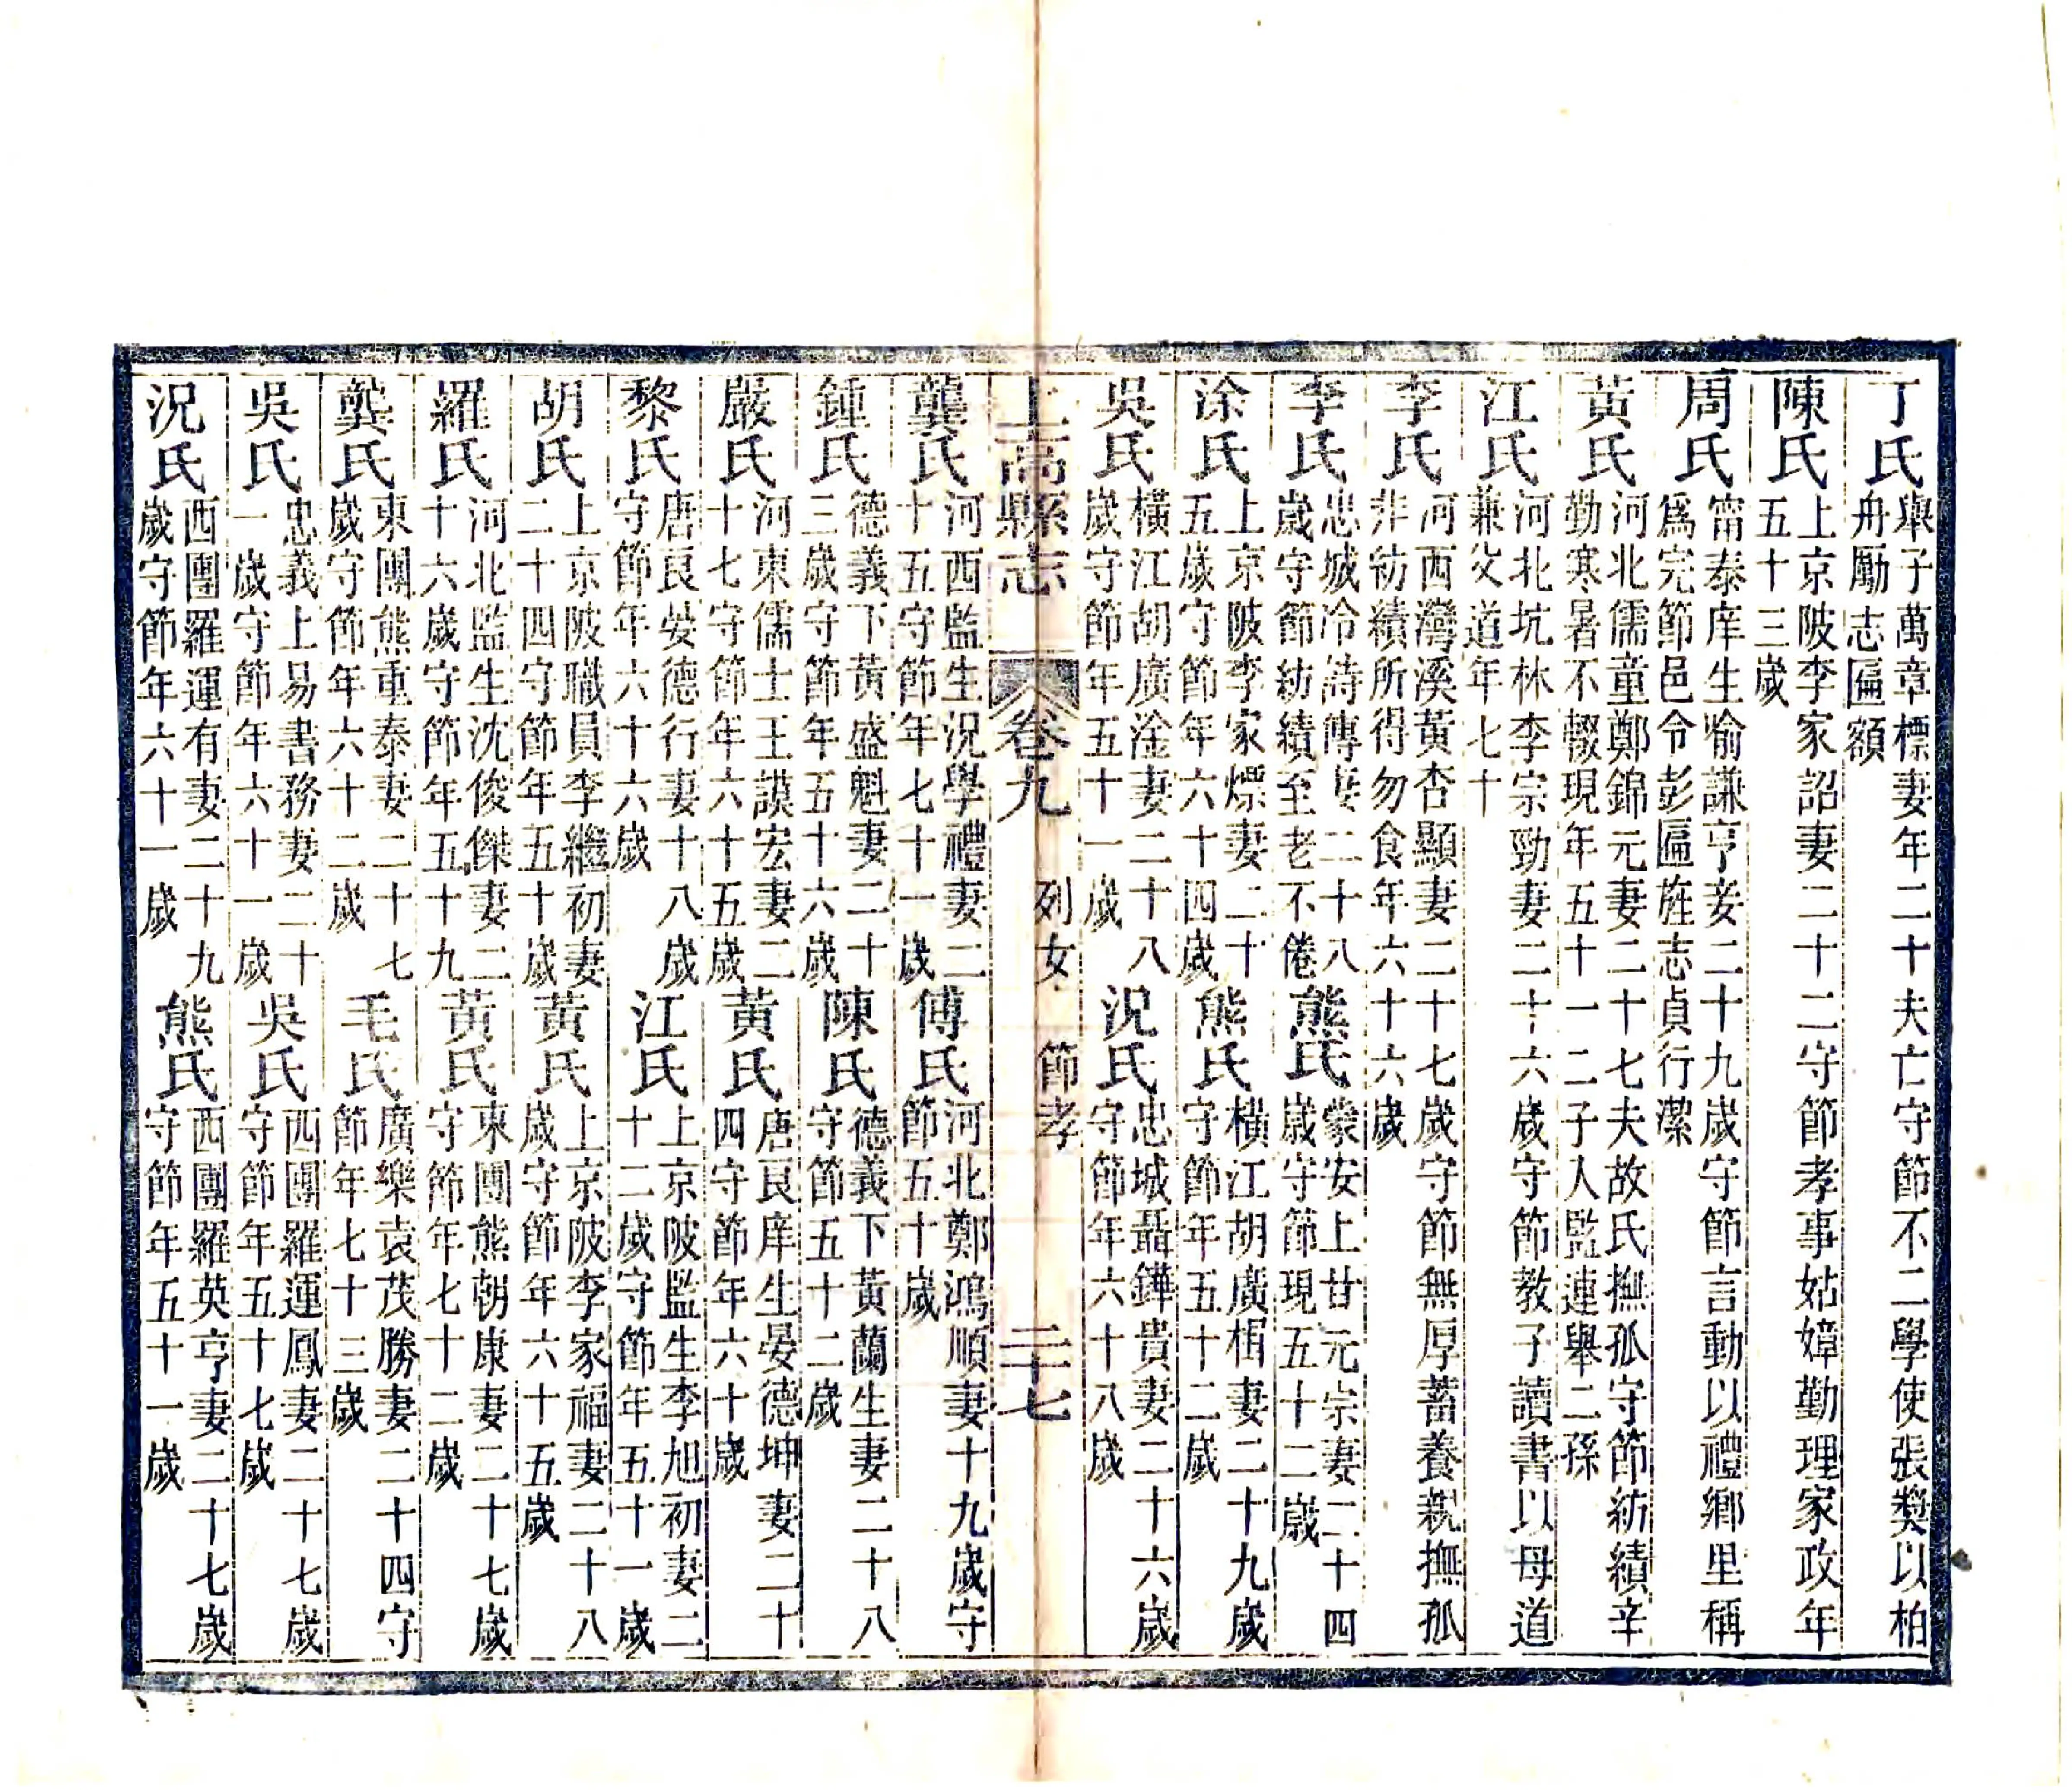 丁氏
舉子萬章標妻年二十夫亡守節不二學使張獎以柏
舟勵志匾額
陳氏
上京陂李家詔妻二十二守節孝事姑嫜勤理家政年
五十三歲
周氏
甯泰庠生喻謙亨妾二十九歲守節言動以禮鄉里稱
爲完節邑令彭匾旌志貞行潔
黃氏
河北儒童鄭錦元妻二十七夫故氏撫孤守節紡績辛
勤寒暑不輟現年五十一二子入監連舉二孫
江氏
河北坑林李宗勁妻二十六歲守節教子讀書以母道
兼父道年七十
李氏
河西灣溪黃杏顯妻二十七歲守節無厚蓄養親撫孤
非紡績所得勿食年六十六歲
李氏
忠城冷詩傳妻二十八
歲守節紡績至老不倦
熊氏
蒙安上甘元宗妻二十四
歲守節現五十二歲
涂氏
上京陂李家熛妻二十
五歲守節年六十四歲
熊氏
橫江胡廣楣妻二十九歲
守節年五十二歲
吳氏
橫江胡廣淦妻二十八
歲守節年五十一歲
況氏
忠城聶鏵貴妻二十六歲
守節年六十八歲
上高縣志
卷九
列女
節孝
二十七
龔氏
河西監生況學禮妻二
十五守節年七十一歲
傅氏
河北鄭鴻順妻十九歲守
節五十歲
鍾氏
德義下黃盛魁妻二十
三歲守節年五十六歲
陳氏
德義下黃蘭生妻二十八
守節五十二歲
嚴氏
河東儒士王謨宏妻二
十七守節年六十五歲
黃氏
唐良庠生晏德坤妻二十
四守節年六十歲
黎氏
唐良晏德行妻十八歲
守節年六十六歲
江氏
上京陂監生李旭初妻二
十二歲守節年五十一歲
胡氏
上京陂職員李繼初妻
二十四守節年五十歲
黃氏
上京陂李家福妻二十八
歲守節年六十五歲
羅氏
河北監生沈俊傑妻二
十六歲守節年五十九
黃氏
東團熊朝康妻二十七歲
守節年七十二歲
龔氏
東團熊重泰妻二十七
歲守節年六十二歲
毛氏
廣樂袁茂勝妻二十四守
節年七十三歲
吳氏
忠義上易書務妻二十
一歲守節年六十一歲
吳氏
西團羅運鳳妻二十七歲
守節年五十七歲
況氏
西團羅運有妻二十九
歲守節年六十一歲
熊氏
西團羅英亨妻二十七歲
守節年五十一歲